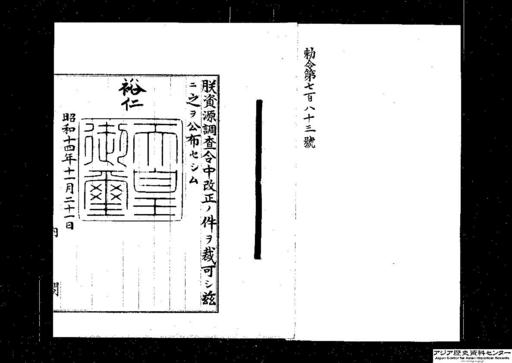 勅令第七百八十三號
朕資源調査令中改正ノ件ヲ裁可シ茲
ニ之ヲ公布セシム
裕仁
天皇御璽
昭和十四年十一月二十一日
内
閣
アジア歴史資料センター
Japan Center for Asian Historical Records